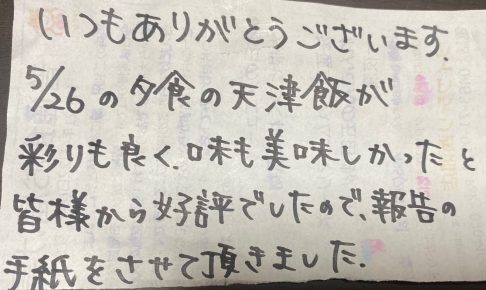 いつもありがとうございます.
5/26の夕食の天津飯が
彩りも良く、味も美味しかったと
皆様から好評でしたので、報告の
手紙をさせて頂きました.